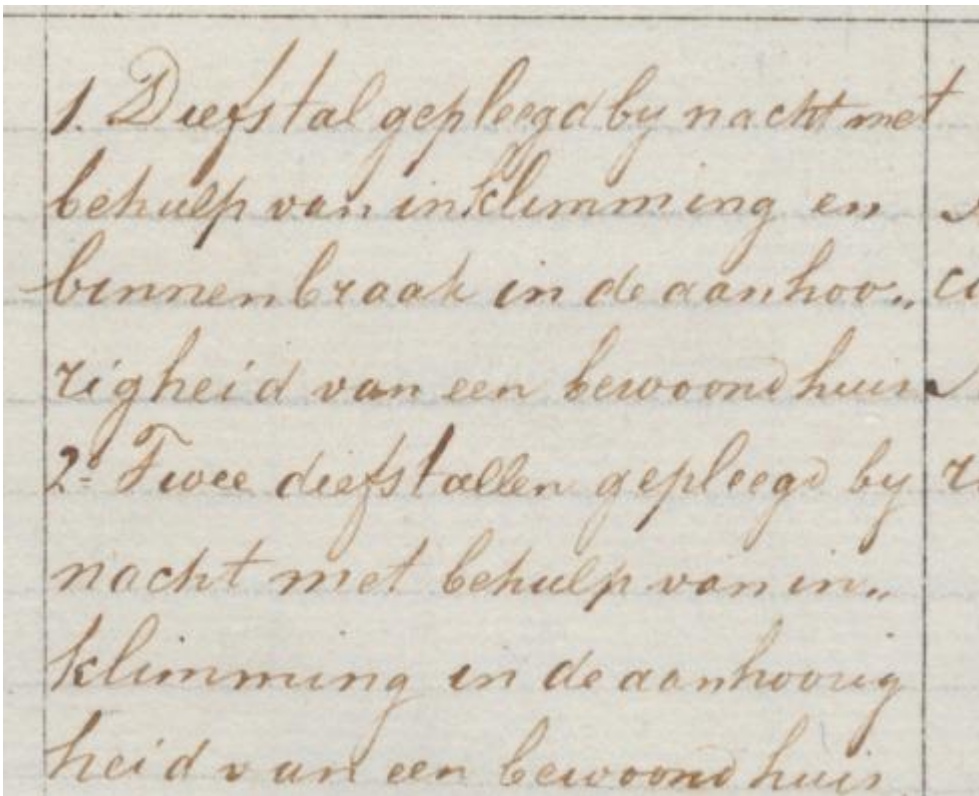 1. Diefstal gepleegd by nacht met
behulp van inklimming en
binnenbraak in de aanhoo„
righeid van een bewoond huis
2º Twee diefstallen gepleegd by
nacht met behulp van in„
klimming in de aanhoorig
heid van een bewoond huis